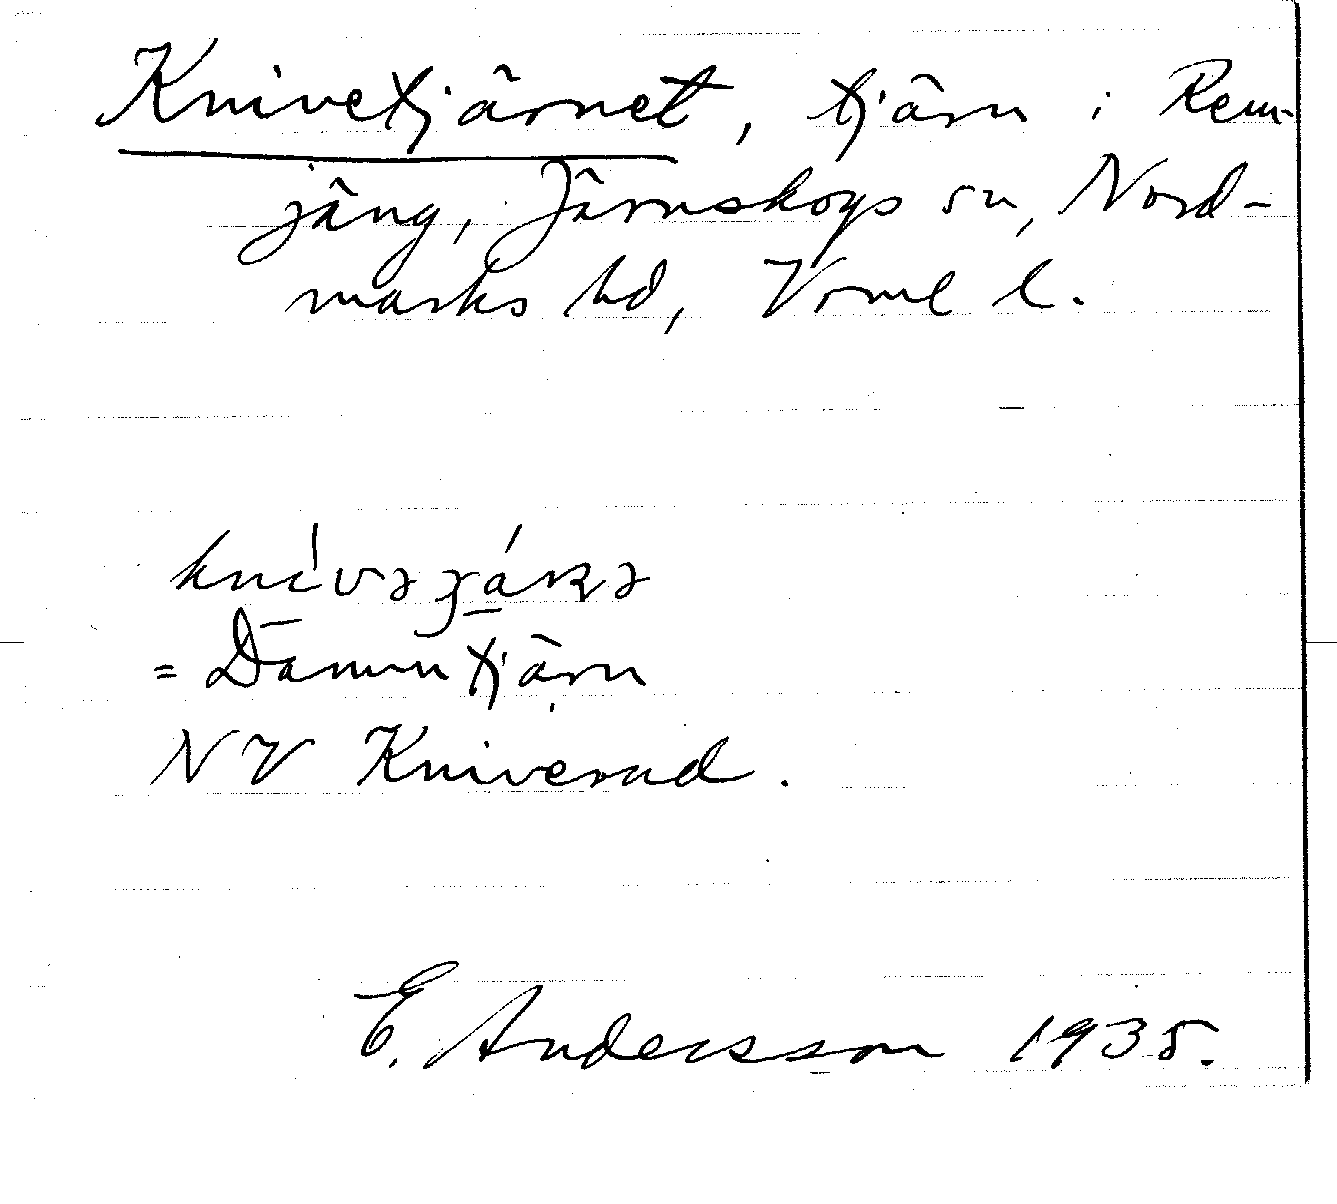 Knivetjärnet, tjärn i Rem-
jäng, Järnskogs sn, Nord-
marks hd, Vrml l.
= Dämmtjärn
NV Kniverud.
E. Andersson 1935.